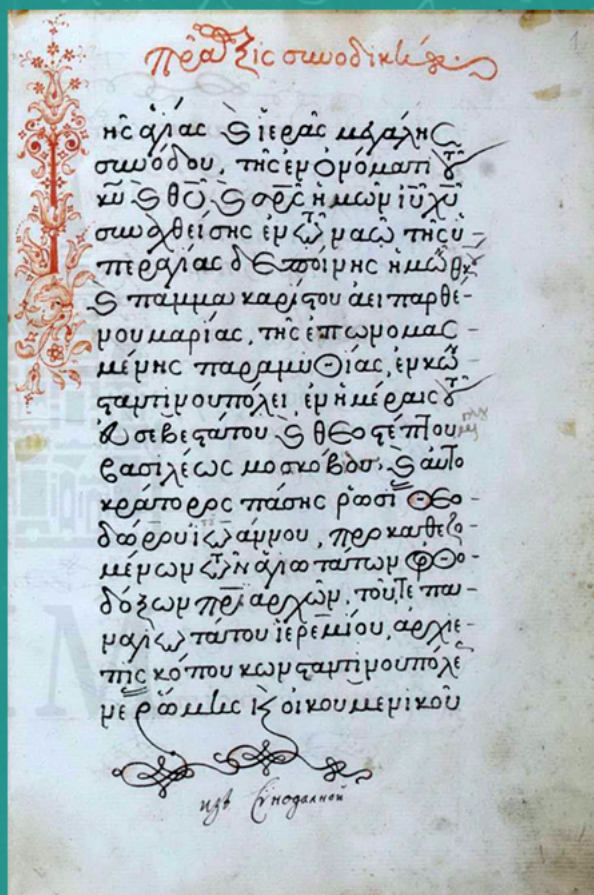 πρᾶξις συνοδική
ης ἁγίας καὶ ἱερᾶς μεγάλης
συνόδου, τῆς ἐν ὀνόματι τοῦ
κυ καὶ θυ καὶ σρς ἡμῶν ιυ χυ
συναχθείσης ἐν τῷ ναῷ τῆς ὑ
περαγίας δεσποίνης ἡμῶν θκου
καὶ παμμακαρίστου ἀειπαρθέ-
νου μαρίας, τῆς ἐπωνομασ-
μένης παραμυθίας, ἐν κων
σταντινουπόλει ἐν ἡμέραις τοῦ
εὐσεβεστάτου καὶ θεοστέπτου
βασιλέως μοσκόβου, καὶ αὐτο
κράτορος πάσης ῥωσί Θεο-
δώρου ἰωάννου, προκαθεζο
μένων τῶν ἁγιωτάτων ὀρθο-
δόξων πριαρχῶν, τοῦ τε πα-
ναγιωτάτου ἱερεμίου, ἀρχιε-
πισκόπου κωνσταντινουπόλε
νε ῥώμης καὶ οἰκουμενικοῦ
изъ Синодалной